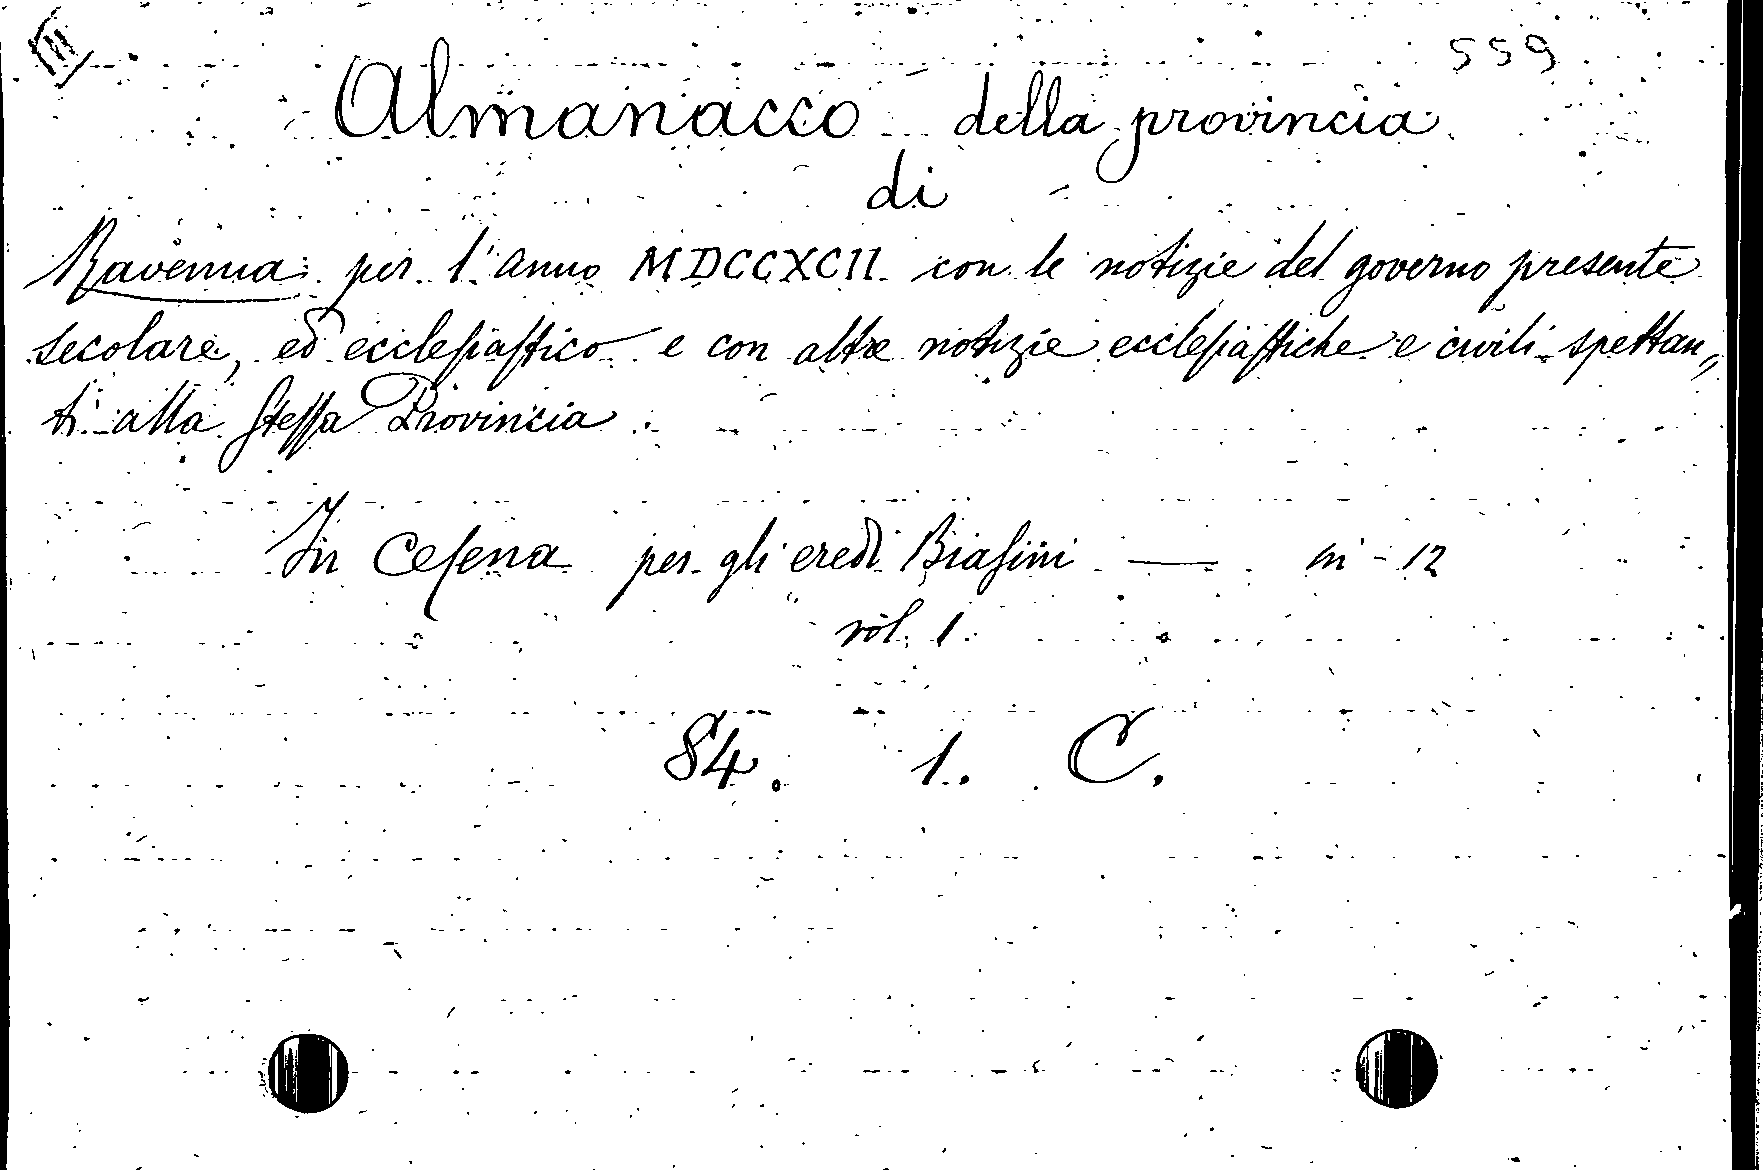 III
559
Almanacco della provincia
di
Ravenna per l'anno MDCCXCII con le notizie del governo presente
secolare, ed ecclesiastico e con altre notizie ecclesiastiche e civili spettan„
ti alla stessa Provincia
In Cesena per gli eredi Biasini — in - 12
vol. 1.
84. 1. C.